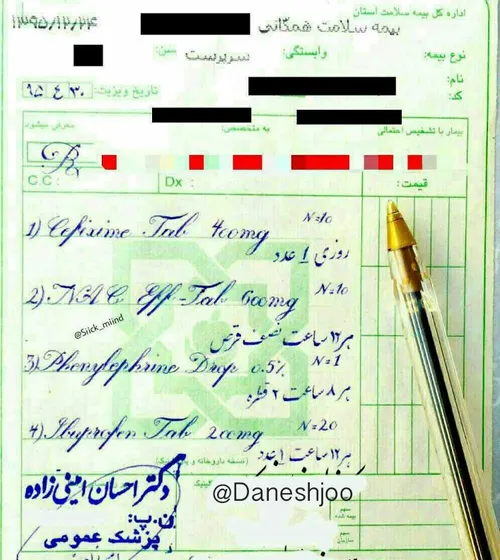 اداره کل بیمه سلامت استان
۱۳۹۵/۱۲/۲۴
بیمه سلامت همگانی
نوع بیمه:
وابستگی:
سرپرست
سن:
نام:
کد:
تاریخ ویزیت:
۹۵ ۴ ۳۰
بیمار با تشخیص احتمالی
به متخصص:
معرفی میشود
C.C :
Dx :
قیمت:
1) Cefixime Tab 400mg N=10
روزی 1 عدد
2) NAC Eff-Tab 600mg N=10
هر ۱۲ ساعت نصف قرص
@Siick_miind
3) Phenylephrine Drop 0.5% N=1
هر ۸ ساعت ۲ قطره
4) Ibuprofen Tab 200mg N=20
هر ۱۲ ساعت 1 عدد
دکتر احسان امینی زاده
@Daneshjoo
ن.پ:
پزشک عمومی
سهم
بیمه شده
سهم
سازمان